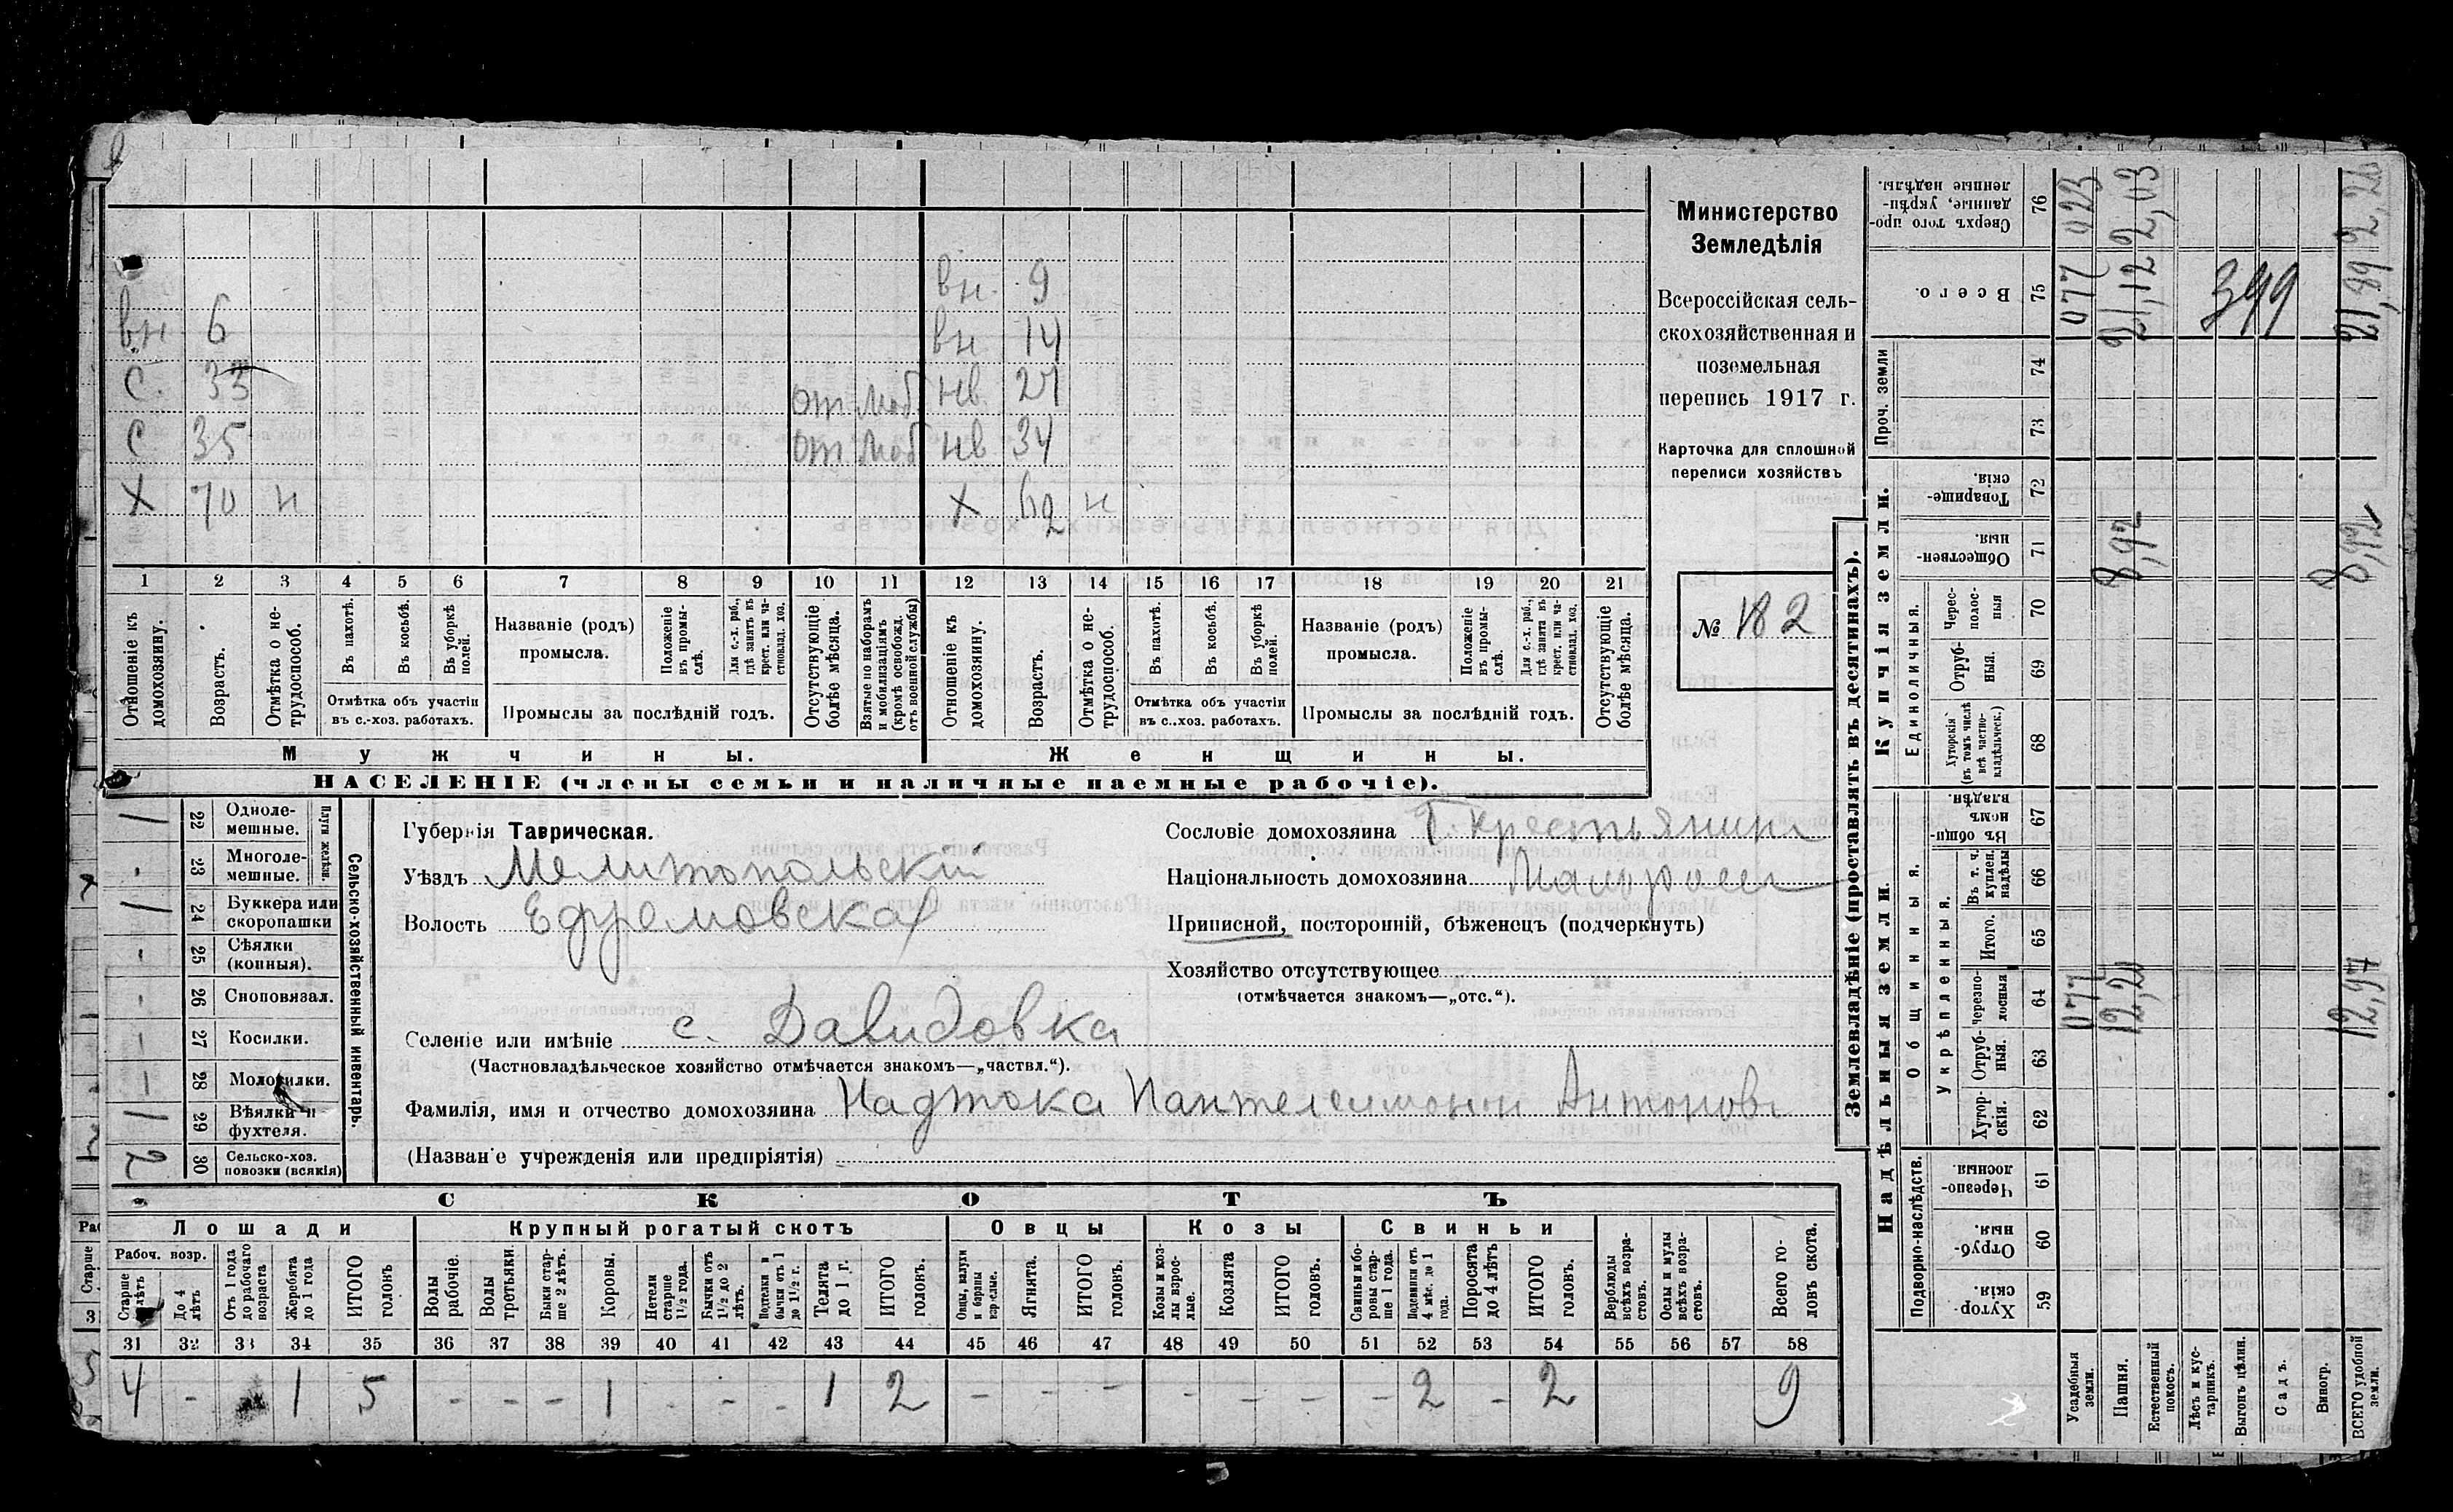 вн 9
вн 6 вн 14
С. 33 от моб нв 27
С 35 от моб нв 34
Х 70 н Х 62 н
1 2 3 4 5 6 7 8 9 10 11 12 13 14 15 16 17 18 19 20 21
Отношеніе къ домохозяину.
Возрастъ.
Отмѣтка о нетрудоспособ.
Въ пахотѣ.
Въ косьбѣ.
Въ уборкѣ полей.
Отмѣтка объ участіи
въ с.-хоз. работахъ.
Названіе (родъ)
промысла.
Положеніе въ промыслѣ.
Для с.-х. раб., гдѣ занятъ въ крест. или частновлад. хоз.
Промыслы за послѣдній годъ.
Отсутствующіе болѣе мѣсяца.
Взятые по наборамъ и мобилизаціямъ (кромѣ освобожд. отъ военной службы)
Отношеніе къ домохозяину.
Возрастъ.
Отмѣтка о нетрудоспособ.
Въ пахотѣ.
Въ косьбѣ.
Въ уборкѣ полей.
Отмѣтка объ участіи
въ с.-хоз. работахъ.
Названіе (родъ)
промысла.
Положеніе въ промыслѣ.
Для с.-х. раб., гдѣ занята въ крест. или частновлад. хоз.
Промыслы за послѣдній годъ.
Отсутствующіе болѣе мѣсяца.
Мужчины. Женщины.
НАСЕЛЕНІЕ (члены семьи и наличные наемные рабочіе).
Министерство
Земледѣлія
Всероссійская сель-
скохозяйственная и
поземельная
перепись 1917 г.
Карточка для сплошной
переписи хозяйствъ
№ 182
1 22 Одноле-мешные.
- 23 Многоле-мешные.
Плуги желѣзн.
1 24 Буккера или скоропашки
- 25 Сѣялки (конныя).
- 26 Сноповязал.
- 27 Косилки.
- 28 Молотилки.
1 29 Вѣялки и фухтеля.
2 30 Сельско-хоз. повозки (всякія)
Сельско-хозяйственный инвентарь.
Губернія Таврическая.
Уѣздъ Мелитопольскій
Волость Ефремовская
Селеніе или имѣніе с. Давидовка
(Частновладѣльческое хозяйство отмѣчается знакомъ—„частвл.“).
Фамилія, имя и отчество домохозяина Надтока Пантелеимонъ Антоновъ
(Названіе учрежденія или предпріятія)
Сословіе домохозяина Г. крестьянинъ
Національность домохозяина Малоросъ
Приписной, посторонній, бѣженецъ (подчеркнуть)
Хозяйство отсутствующее
(отмѣчается знакомъ—„отс.“).
СКОТЪ
Лошади Крупный рогатый скотъ Овцы Козы Свиньи
Рабоч. возр.
Старше лѣтъ
До 4 лѣтъ
Отъ 1 года до рабочаго возраста
Жеребята до 1 года
ИТОГО головъ
Волы рабочіе.
Волы третьяки.
Быки старше 2 лѣтъ.
Коровы.
Нетели старше 1½ года.
Бычки отъ 1½ до 2 лѣтъ.
Подтелки и бычки отъ 1 до 1½ г.
Телята до 1 г.
ИТОГО головъ.
Овцы, валухи и бараны взрослые.
Ягнята.
ИТОГО головъ.
Козы и козлы взрослые.
Козлята
ИТОГО головъ.
Свиньи и боровы старше 1 года.
Подсвинки отъ 4 мѣс. до 1 года.
Поросята до 4 лѣтъ
ИТОГО головъ.
Верблюды всѣхъ возрастовъ.
Ослы и мулы всѣхъ возрастовъ.
Всего головъ скота.
31 32 33 34 35 36 37 38 39 40 41 42 43 44 45 46 47 48 49 50 51 52 53 54 55 56 57 58
4 - 1 5 - - - 1 - - - 1 2 - - - - - - - 2 - 2 9
Землевладѣніе (проставлять въ десятинахъ).
Купчія земли.
Надѣльныя земли.
Сверхъ того проданные, укрѣпленные надѣлы. 76 023 2,03 2,26
Всего. 75 077 21,12 399 21,89
Проч. земли 74
73
Товарищескія. 72
Общественныя. 71 8,92 8,92
Единоличныя.
Черес-полосныя 70
Отрубныя. 69
Хуторскія (въ томъ числѣ всѣ частновладѣльческ.) 68
Общинныя.
Въ общинномъ владѣн. 67
Укрѣпленныя.
Въ т. ч. куплен. надѣлы 66
Итого. 65
Черезполосныя 64 077 12,20 12,97
Отрубныя. 63
Хуторскія. 62
Подворно-наслѣдств.
Черезполосныя. 61
Отрубныя. 60
Хуторскія 59
Усадебныя земли.
Пашня.
Естественный покосъ.
Лѣсъ и кустарникъ.
Выгонъ цѣлин.
Садъ.
Виногр.
ВСЕГО удобной земли.